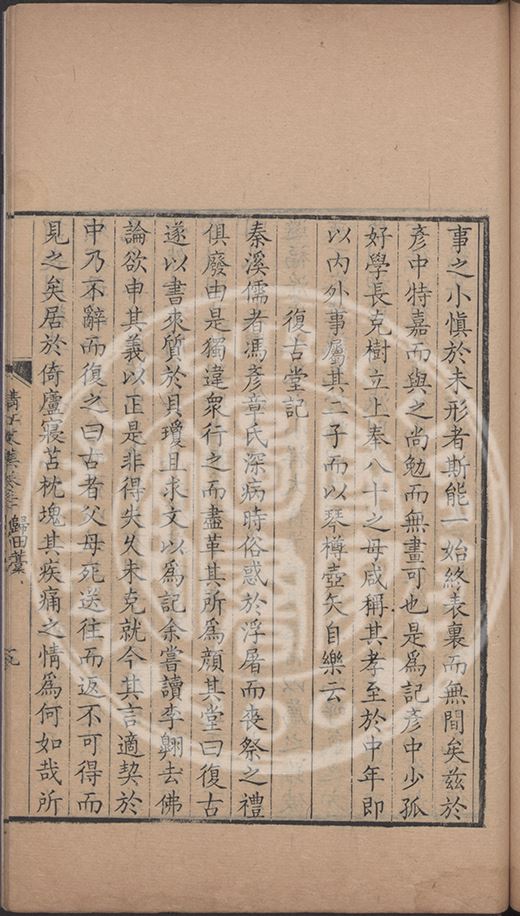 事之小慎於未形者斯能一始終表裏而無間矣茲於
彥中特嘉而與之尚勉而無畫可也是爲記彥中少孤
好學長克樹立上奉八十之母咸稱其孝至於中年即
以內外事屬其二子而以琴樽壺矢自樂云
復古堂記
秦溪儒者馮彥章氏深病時俗惑於浮屠而喪祭之禮
俱廢由是獨違衆行之而盡革其所爲顏其堂曰復古
遂以書來質於貝瓊且求文以爲記余嘗讀李翺去佛
論欲申其義以正是非得失久未克就今其言適契於
中乃不辭而復之曰古者父母死送往而返不可得而
見之矣居於倚廬寢苫枕塊其疾痛之情爲何如哉所
歸田藁